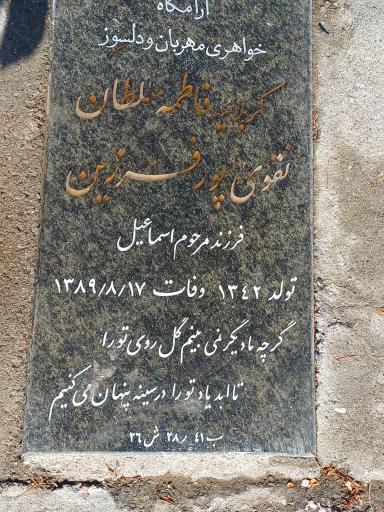 آرامگاه
خواهری مهربان و دلسوز
کربلاییه فاطمه سلطان
نقوی پور فرزین
فرزند مرحوم اسماعیل
تولد ۱۳۴۲ وفات ۱۳۸۹/۸/۱۷
گرچه ما دیگر نمی بینیم گل روی تو را
تا ابد یاد تو را در سینه پنهان می کنیم
ب ۴۱ ر ۲۸ ش ۲۶